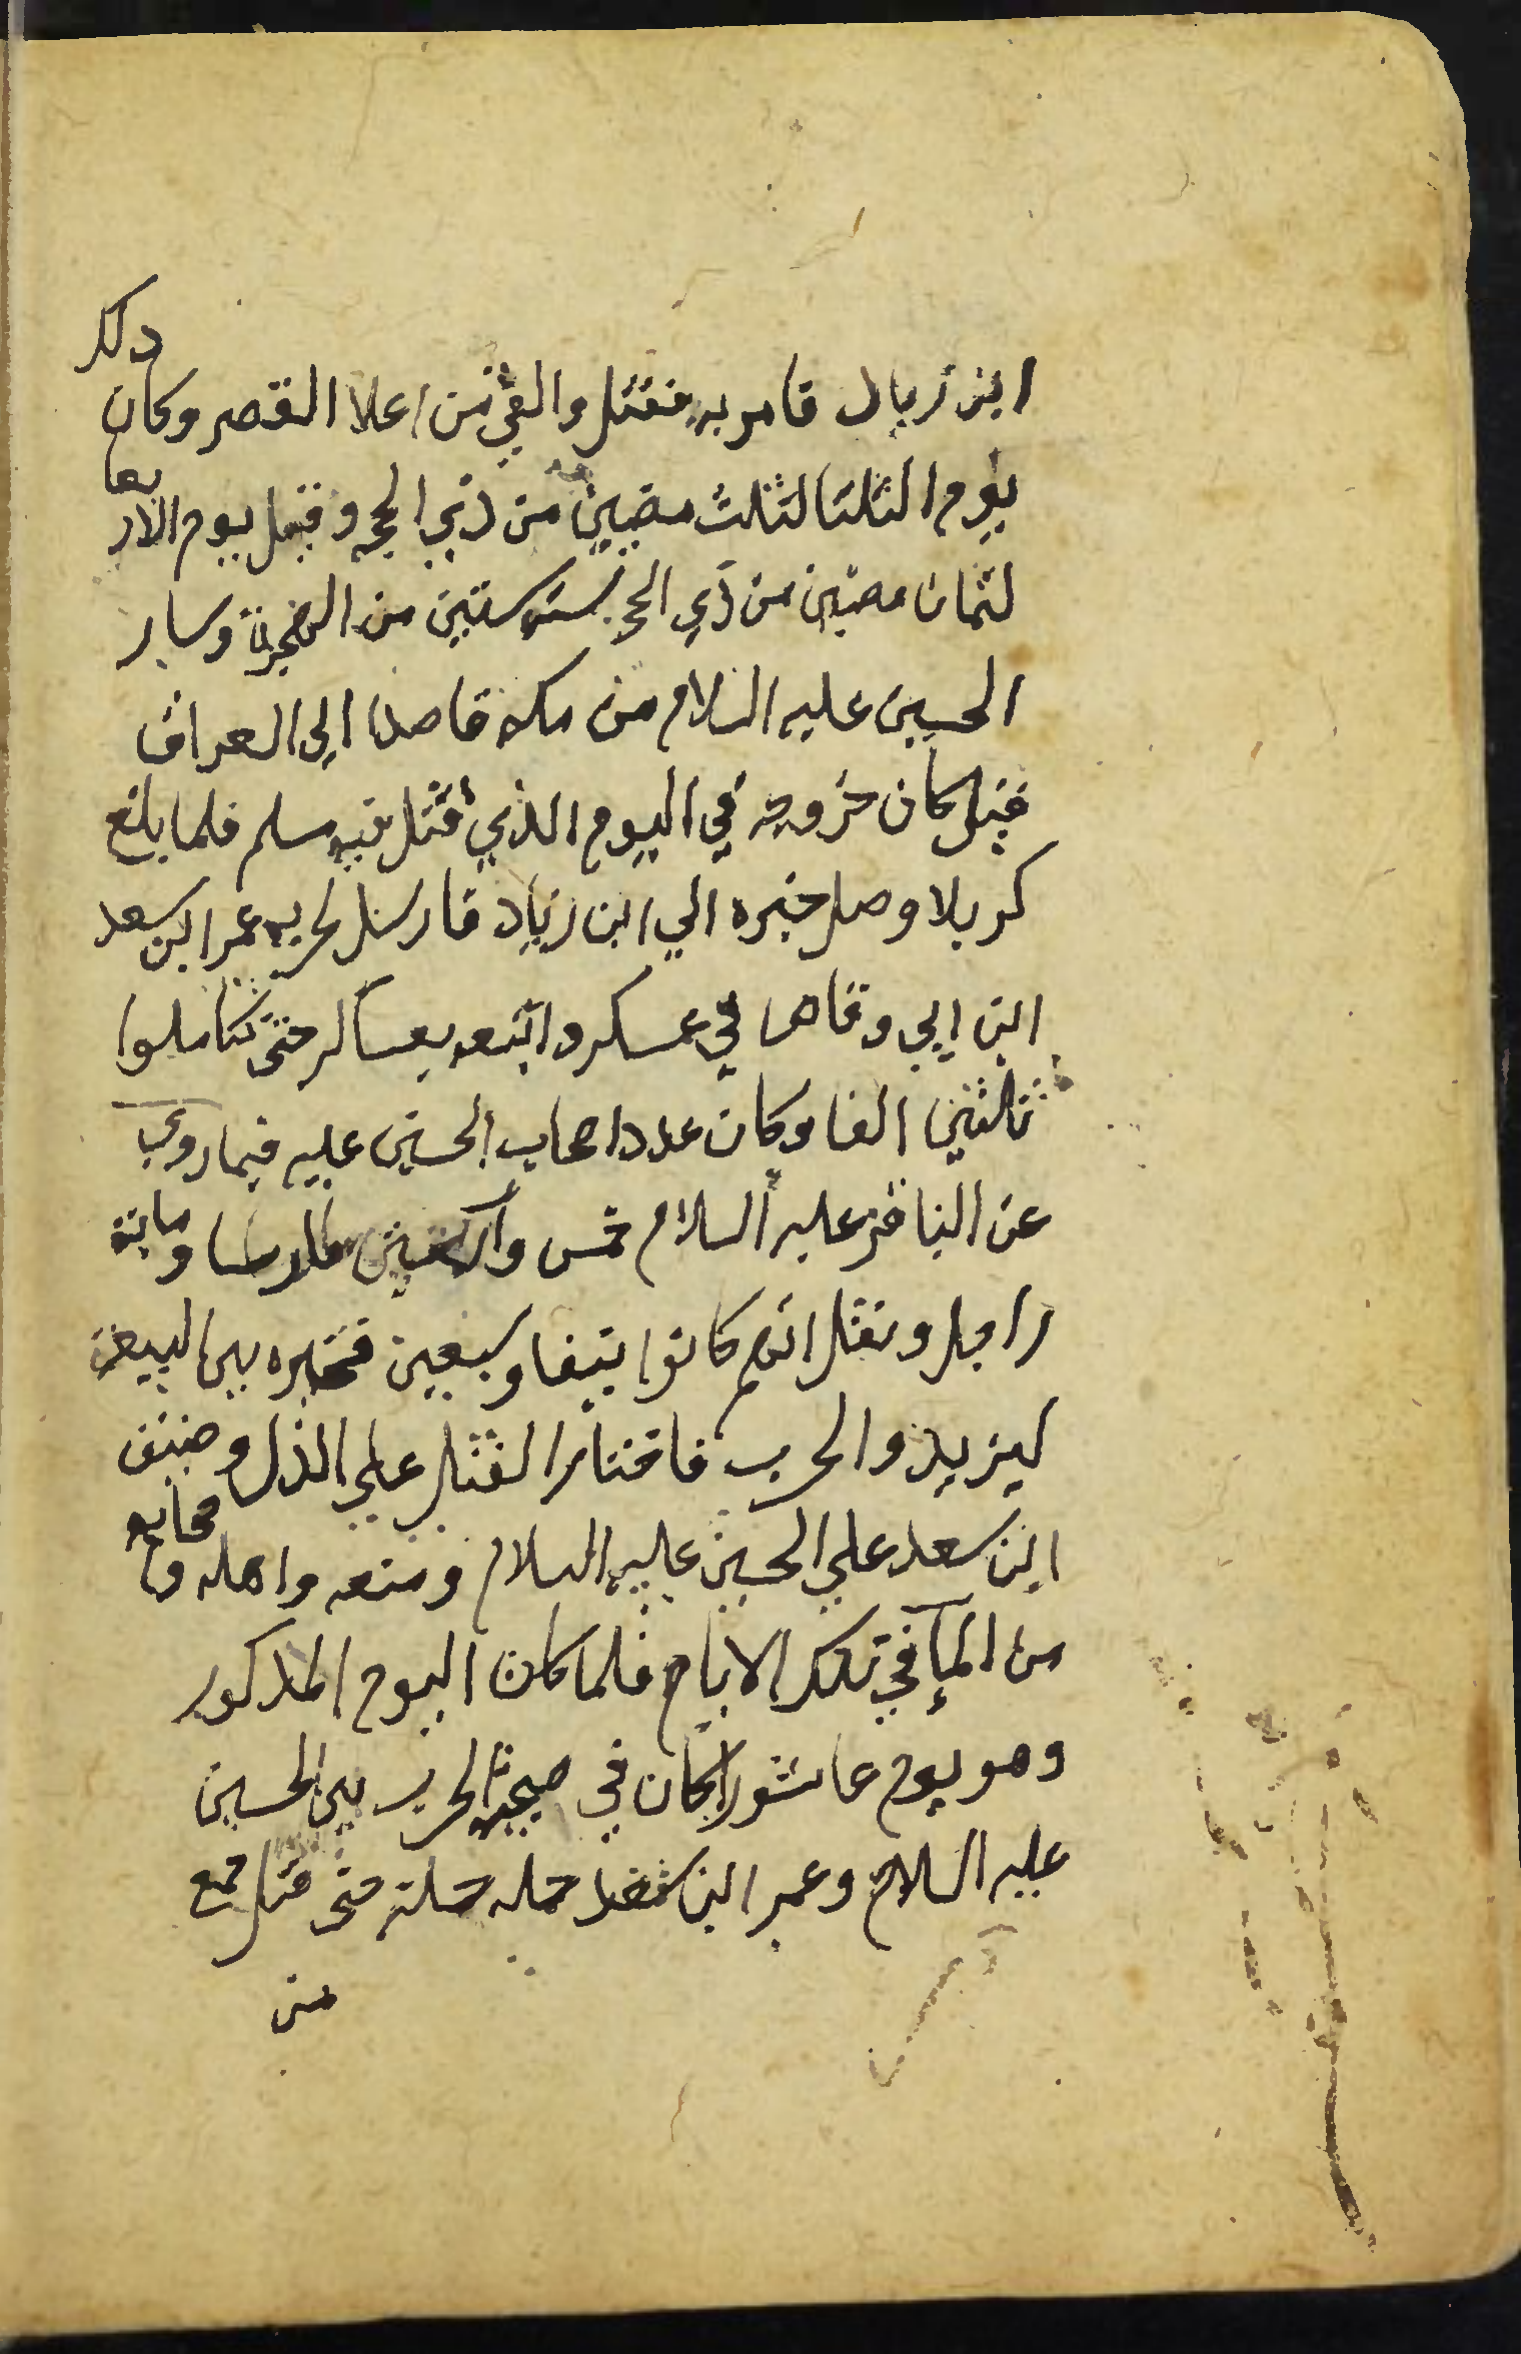 ابن زياد فامر به فقتل والقي من اعلا القصر وكان ذلك
يوم الثلثا لثلث مضين من ذي الحجه وقيل يوم الاربعا
لثمان مضين من ذي الحجه سنه ستين من الهجرة وسار
الحسين عليه السلام من مكه قاصدا الي العراق
قيل كان خروجه في اليوم الذي قتل فيه مسلم فلما بلغ
كربلا وصل خبره الي ابن زياد فارسل لحربه عمر ابن سعد
ابن ابي وقاص في عسكر واتبعه بعساكر حتى تكاملوا
ثلاثين الفا وكان عدد اصحاب الحسين عليه فيما روي
عن الباقر عليه السلام خمس واربعين فارسا ومايه
راجل ونقل انهم كانوا نيفا وسبعين فخيره بين البيعة
ليزيد والحرب فاختار القتل علي الذل وضيق
ابن سعد علي الحسين عليه السلام ومنعه واهله واصحابه
من المآ في تلك الايام فلما كان اليوم المذكور
وهو يوم عاشورا كان في صبيحته الحرب بين الحسين
عليه السلام وعمر ابن سعد حمله حملة حتى قتل جمع
من